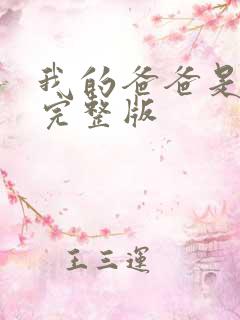 我的爸爸是
完整版
王三運